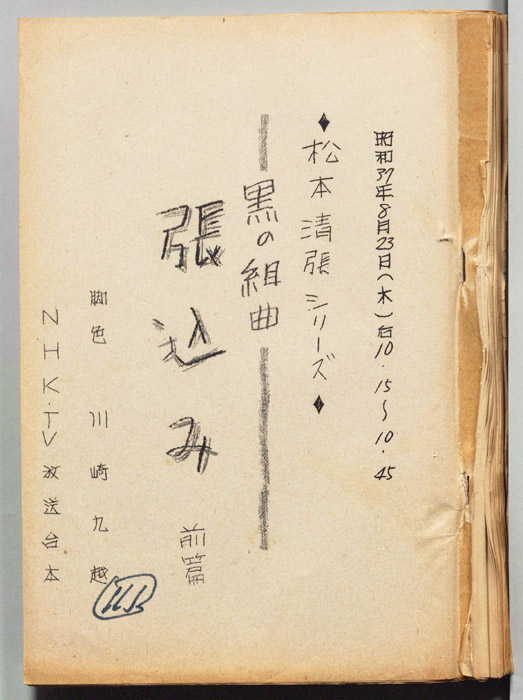 昭和37年8月23日(木)后10.15~10.45
♦松本清張シリーズ♦
黒の組曲
張込み 前篇
脚色 川崎九越
NHK・TV放送台本